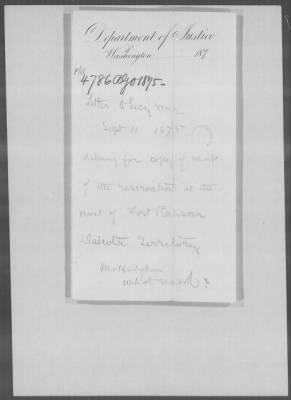 Department of Justice
Washington 187
4786 AGO 1875
Letter to Secy War
Sept 11 1875
asking for copy of map
of the reservation at the
post of Fort Ransom
Dakota Territory
what need?